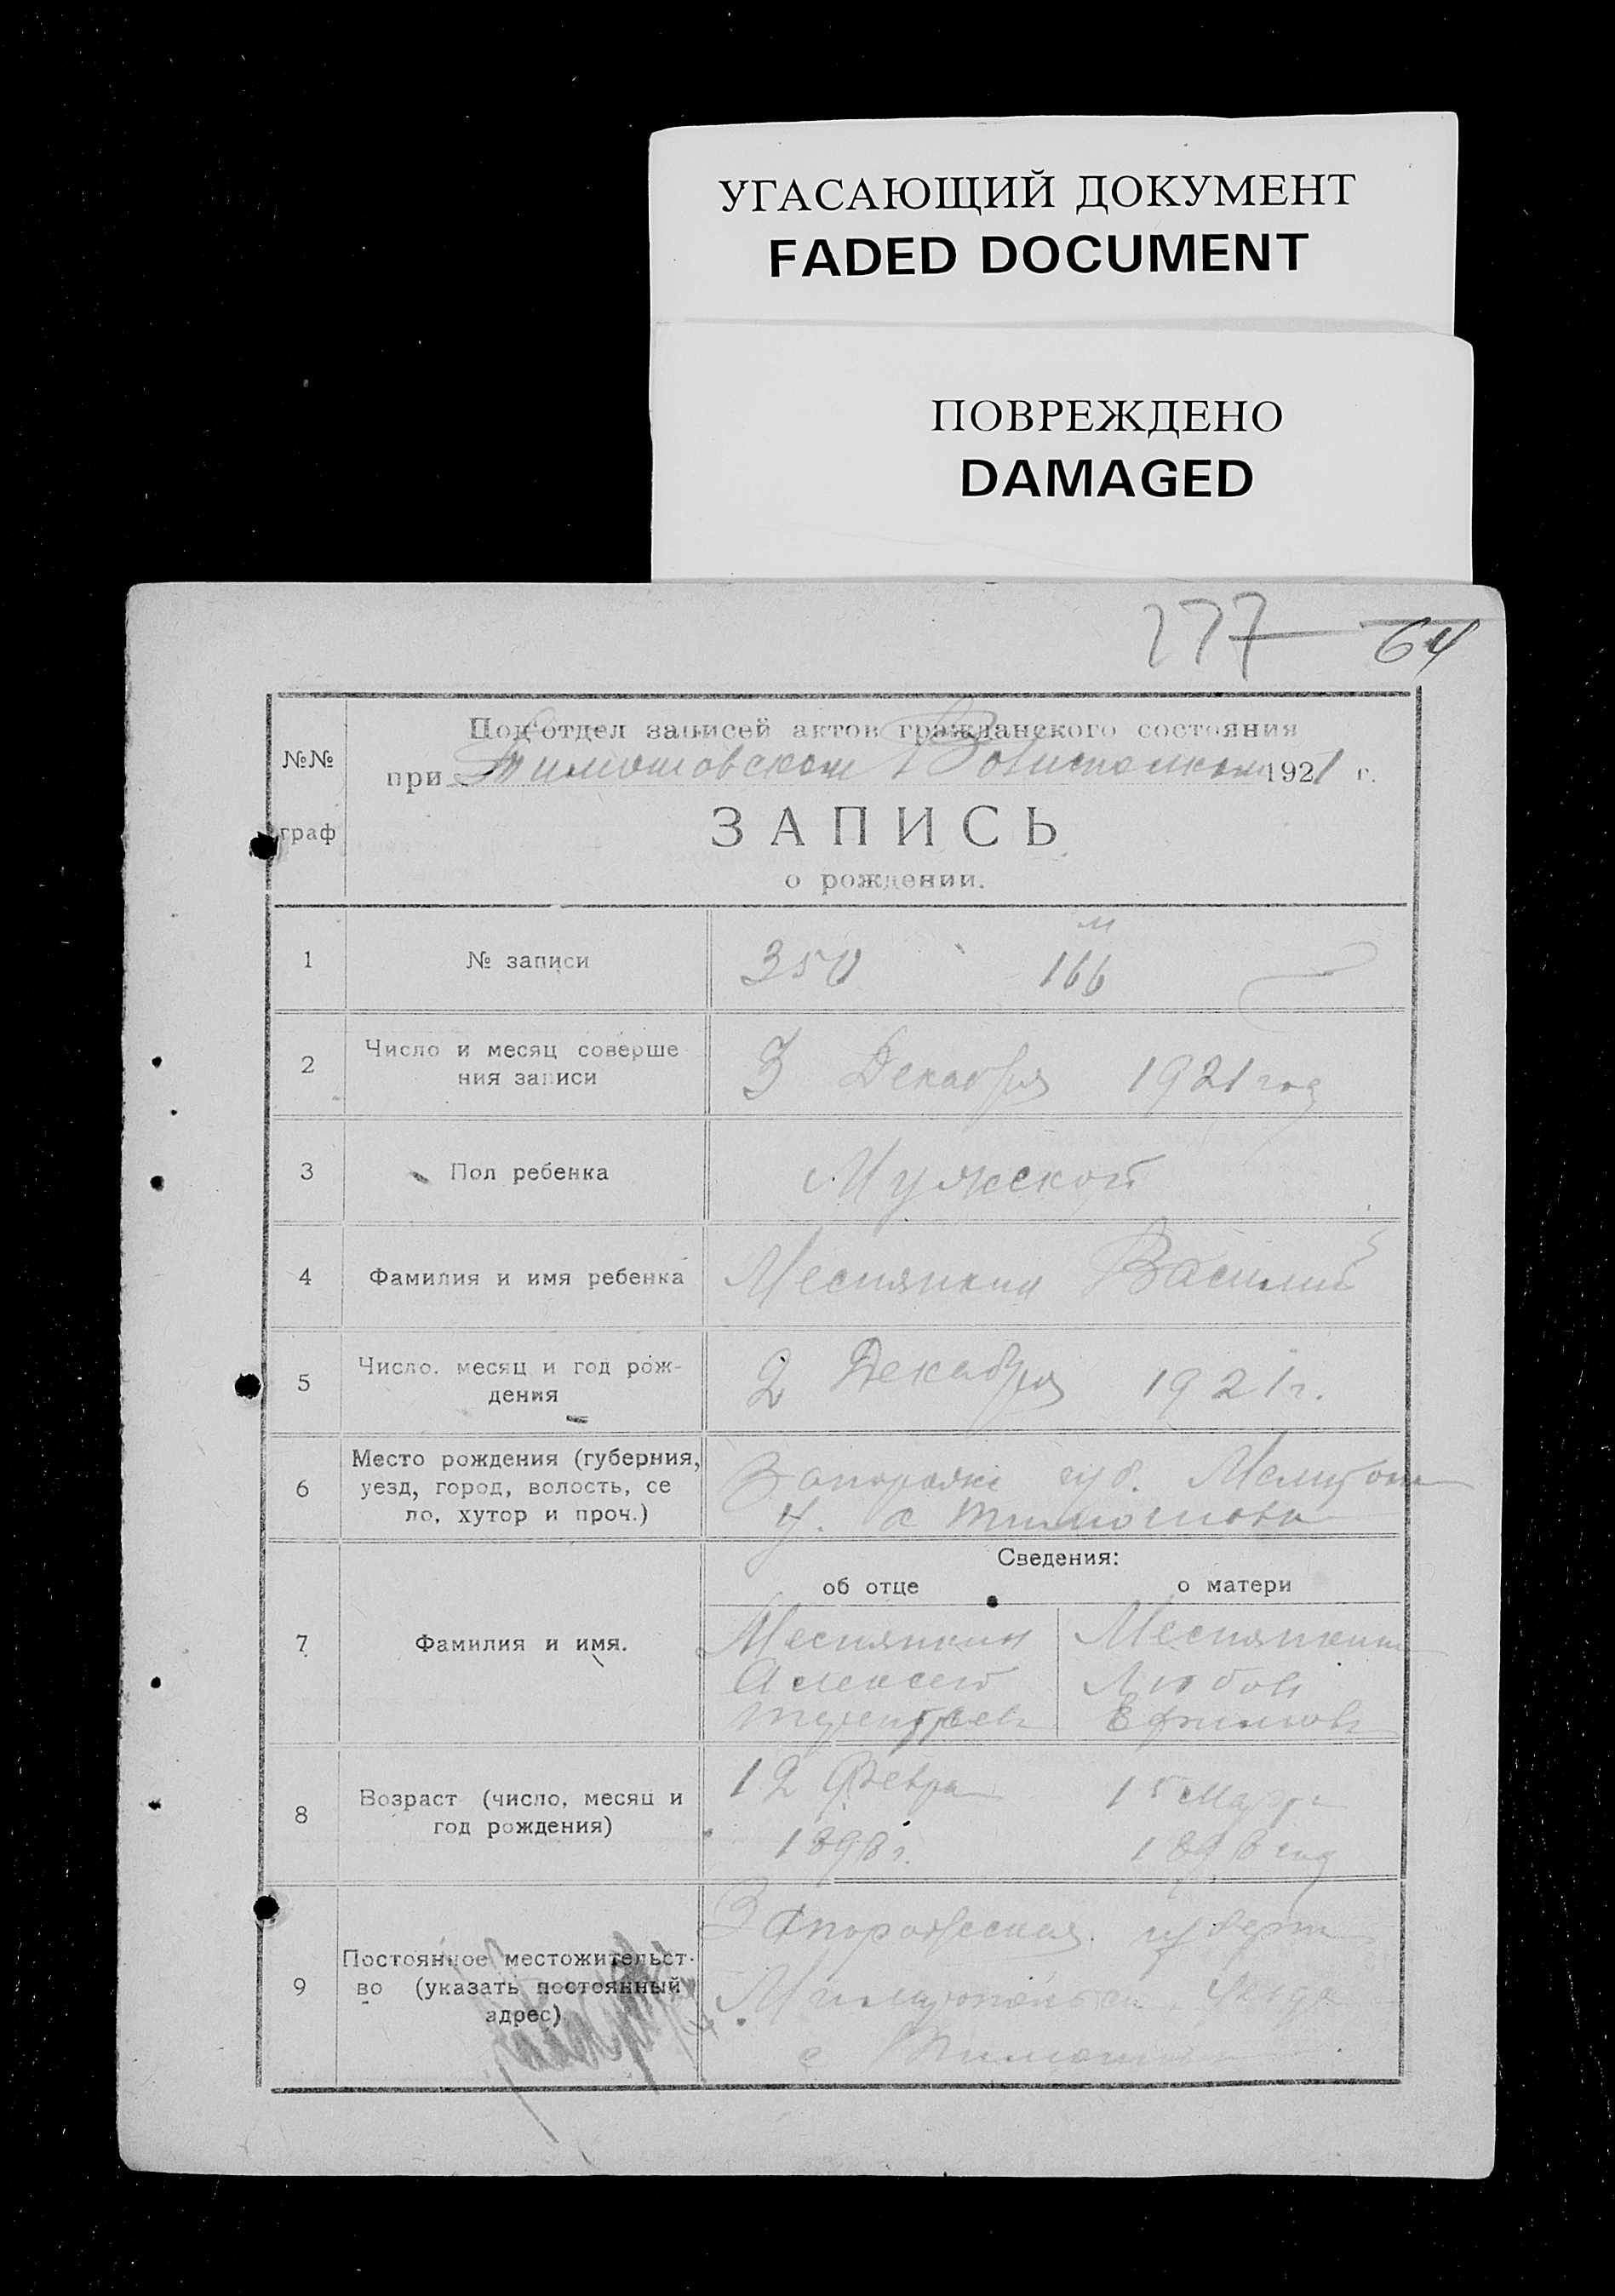 УГАСАЮЩИЙ ДОКУМЕНТ
FADED DOCUMENT
ПОВРЕЖДЕНО
DAMAGED
277 64
№№ граф
Под‘отдел записей актов гражданского состояния
при Тимошовском 1921 г.
ЗАПИСЬ
о рождении.
1 № записи 350 м 166
2 Число и месяц соверше
ния записи 3 Декабря 1921 год
3 Пол ребенка Мужской
4 Фамилия и имя ребенка Василий
5 Число. месяц и год рож-
дения 2 Декабря 1921 г.
6 Место рождения (губерния,
уезд, город, волость, се
ло, хутор и проч.) Запорожс губ. Мелитоп
у. с Тимошовка
Сведения:
об отце о матери
7 Фамилия и имя.
Алексей Любовь
Ефимов
8 Возраст (число, месяц и
год рождения) 12 Февра 15 Марта
1898 г. 1898 год
9 Постоянное местожительст-
во (указать постоянный
адрес) Запорожская губерн
уезда
с Тимошовка